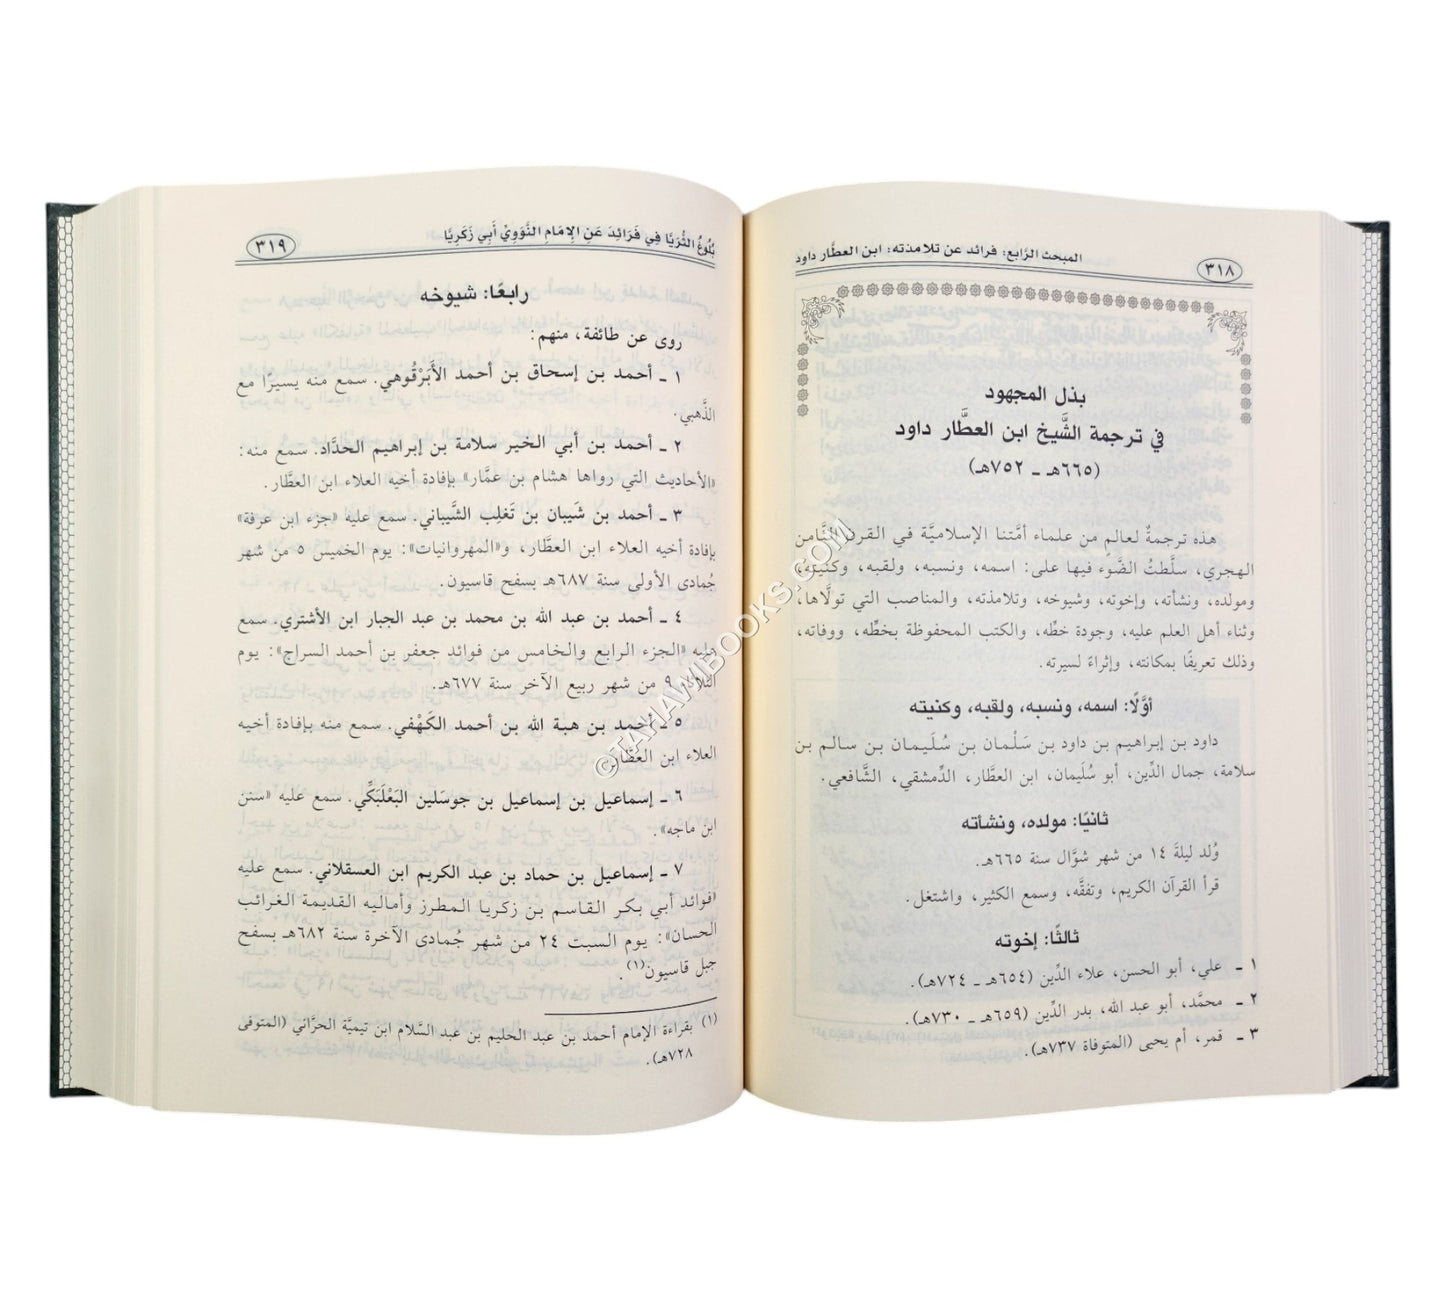 المبحث الرَّابع: فرائد عن تلامذته: ابن العطَّار داود
٣١٨
بذل المجهود
في ترجمة الشَّيخ ابن العطَّار داود
(٦٦٥هـ ـ ٧٥٢هـ)
هذه ترجمةٌ لعالمٍ من علماء أمَّتنا الإسلاميَّة في القرن الثَّامن
الهجري، سلَّطتُ الضَّوء فيها على: اسمه، ونسبه، ولقبه، وكنيته،
ومولده، ونشأته، وإخوته، وشيوخه، وتلامذته، والمناصب التي تولَّاها،
وثناء أهل العلم عليه، وجودة خطِّه، والكتب المحفوظة بخطِّه، ووفاته،
وذلك تعريفًا بمكانته، وإثراءً لسيرته.
أوَّلًا: اسمه، ونسبه، ولقبه، وكنيته
داود بن إبراهيم بن داود بن سَلْمان بن سُلَيمان بن سالم بن
سلامة، جمال الدِّين، أبو سُلَيمان، ابن العطَّار، الدِّمشقي، الشَّافعي.
ثانيًا: مولده، ونشأته
وُلد ليلةَ ١٤ من شهر شوَّال سنة ٦٦٥هـ.
قرأ القرآن الكريم، وتفقَّه، وسمع الكثير، واشتغل.
ثالثًا: إخوته
١ ـ علي، أبو الحسن، علاء الدِّين (٦٥٤هـ ـ ٧٢٤هـ).
٢ ـ محمَّد، أبو عبد الله، بدر الدِّين (٦٥٩هـ ـ ٧٣٠هـ).
٣ ـ قمر، أم يحيى (المتوفاة ٧٣٧هـ).
بُلُوغُ الثُّرَيَّا فِي فَرَائِدَ عَنِ الإِمَامِ النَّوَوِيِّ أَبِي زَكَرِيَّا
٣١٩
رابعًا: شيوخه
روى عن طائفة، منهم:
١ ـ أحمد بن إسحاق بن أحمد الأَبَرْقُوهي. سمع منه يسيرًا مع
الذَّهبي.
٢ ـ أحمد بن أبي الخير سلامة بن إبراهيم الحدَّاد. سمع منه:
«الأحاديث التي رواها هشام بن عمَّار» بإفادة أخيه العلاء ابن العطَّار.
٣ ـ أحمد بن شَيبان بن تَغلِب الشَّيباني. سمع عليه «جزء ابن عرفة»
بإفادة أخيه العلاء ابن العطَّار، و«المهروانيات»: يوم الخميس ٥ من شهر
جُمادى الأولى سنة ٦٨٧هـ بسفح قاسيون.
٤ ـ أحمد بن عبد الله بن محمد بن عبد الجبار ابن الأشتري. سمع
عليه «الجزء الرابع والخامس من فوائد جعفر بن أحمد السراج»: يوم
الثلاثاء ٩ من شهر ربيع الآخر سنة ٦٧٧هـ.
٥ ـ أحمد بن هبة الله بن أحمد الكَهْفي. سمع منه بإفادة أخيه
العلاء ابن العطَّار.
٦ ـ إسماعيل بن إسماعيل بن جوسَلين البَعْلَبَكِّي. سمع عليه «سنن
ابن ماجه».
٧ ـ إسماعيل بن حماد بن عبد الكريم ابن العسقلاني. سمع عليه
«فوائد أبي بكر القاسم بن زكريا المطرز وأماليه القديمة الغرائب
الحسان»: يوم السبت ٢٤ من شهر جُمادى الآخرة سنة ٦٨٢هـ بسفح
جبل قاسيون(١).
(١) بقراءة الإمام أحمد بن عبد الحليم بن عبد السَّلام ابن تيميَّة الحرَّاني (المتوفى
٧٢٨هـ).
©TAHAWIBOOKS.COM